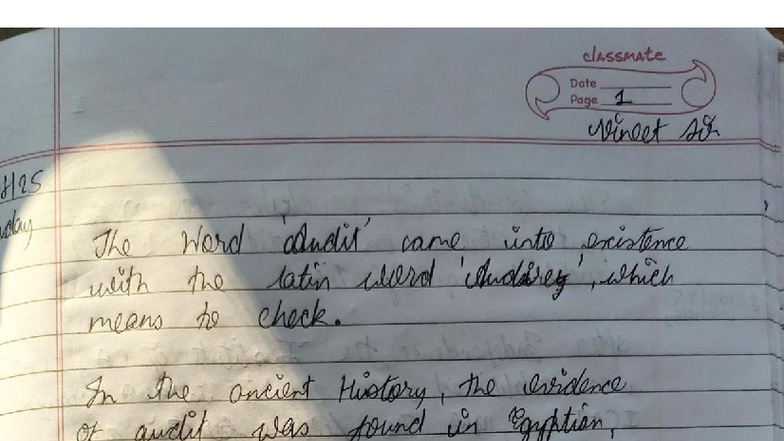 classmate
Date
Page 1
Vineet Sir
The Word 'Audit' came into existence
with the latin word 'Audirey', which
means to check.
In the ancient History, the evidence
of audit was found in Egyptian,